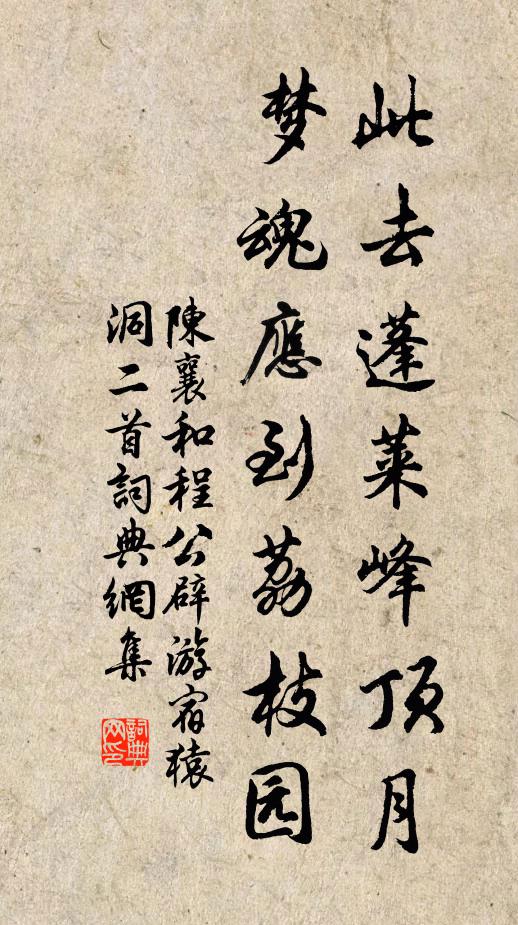 此去蓬莱峰顶月
梦魂應到荔枝园
陳襄和程公辟游宿猿
洞二首詞典網集
詞典
网印